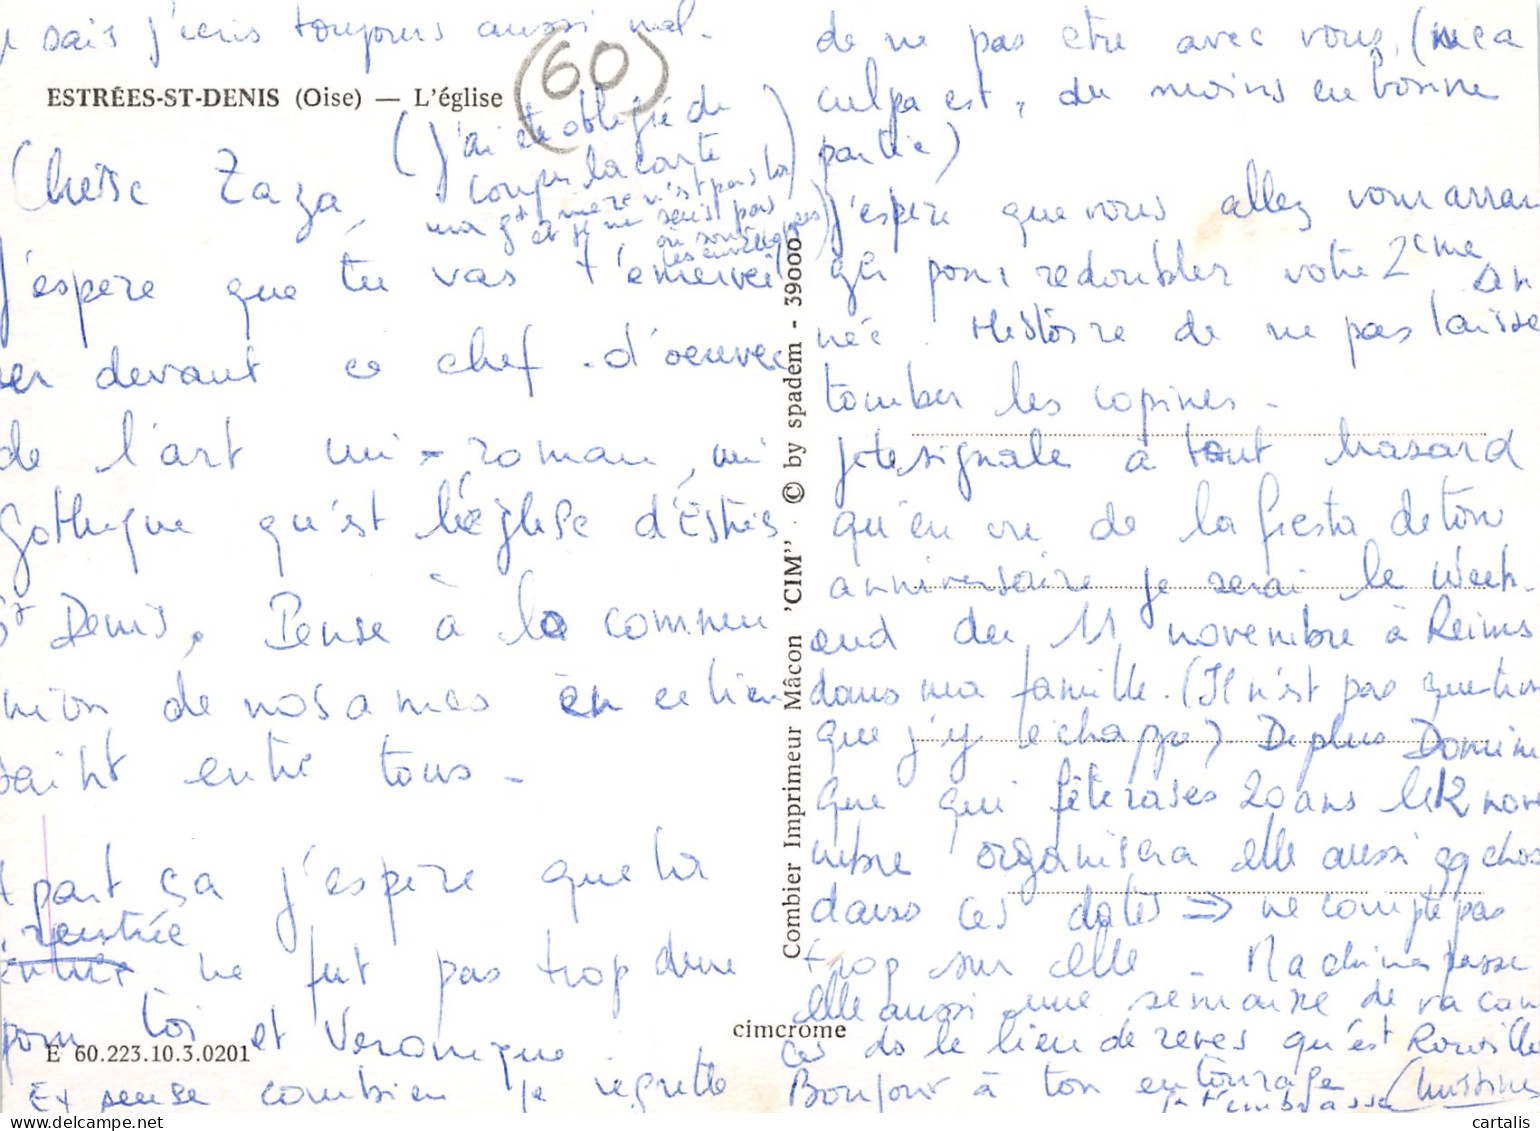 sais j'écris toujours aussi mal.
ESTRÉES-ST-DENIS (Oise) — L'église
(60)
Chère Zaza,
(J'ai été obligée de
couper la carte
ma gd mère n'est pas là
et je ne sais pas
où sont
les enveloppes)
J'espère que tu vas t'émervei
ller devant ce chef-d'oeuvre
de l'art mi-roman, mi
gothique qu'est l'église d'Estrées
St Denis. Pense à la commu
nion de nos âmes en ce lieu
saint entre tous.
A part ça j'espère que la
rentrée
ne fut pas trop dure
pour toi et Véronique.
Et pense combien je regrette
de ne pas être avec vous, (mea
culpa est, du moins en bonne
partie)
J'espère que vous allez vous arran
ger pour redoubler votre 2ème an
née. Histoire de ne pas laisser
tomber les copines.
Je te signale à tout hasard
qu'en vue de la fiesta de ton
anniversaire je serai le week-
end du 11 novembre à Reims
dans ma famille. (Il n'est pas question
que j'y échappe) De plus Domini
que qui fêtera ses 20 ans le 12 nove
mbre organisera elle aussi qq chose
dans ces dates ⇒ ne compte pas
trop sur elle. Machine passe
elle aussi une semaine de vacan
ces ds le lieu de rêves qu'est
Bonjour à ton entourage
je t'embrasse Christine
Combier Imprimeur Mâcon "CIM" · © by spadem - 39000
cimcrome
E 60.223.10.3.0201
cartalis
delcampe.net